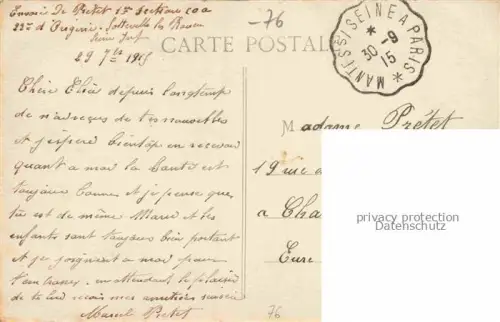 Envoie de Pretet 1re Section COA
22me d'Ougrine Sotteville les Rouen
Seine Infre
29 7bre 1915
-76
CARTE POSTALE
MANTES S/ SEINE A PARIS
30-9
15
Chère Elise depuis longtemps
de n'avoir reçus de tes nouvelles
et j'espère bientôt en recevoir
quant a moi la santé est
toujours bonne et je pense que
tu est de même Marie et les
enfants sont toujours bien portant
et je joignent a moi pour
t'embrasser. en attendant le plaisir
de te lire reçois mes amitiés sincère
Marcel Pretet
Madame Prétet
19 rue
a Cha
Eure
privacy protection
Datenschutz
76